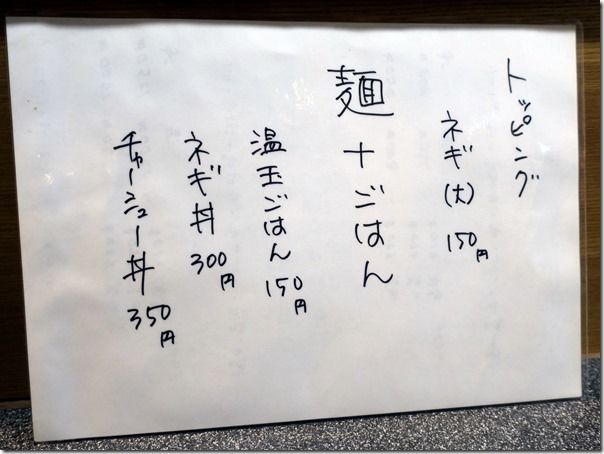 トッピング
ネギ(大) 150円
麺+ごはん
温玉ごはん 150円
ネギ丼 300円
チャーシュー丼 350円